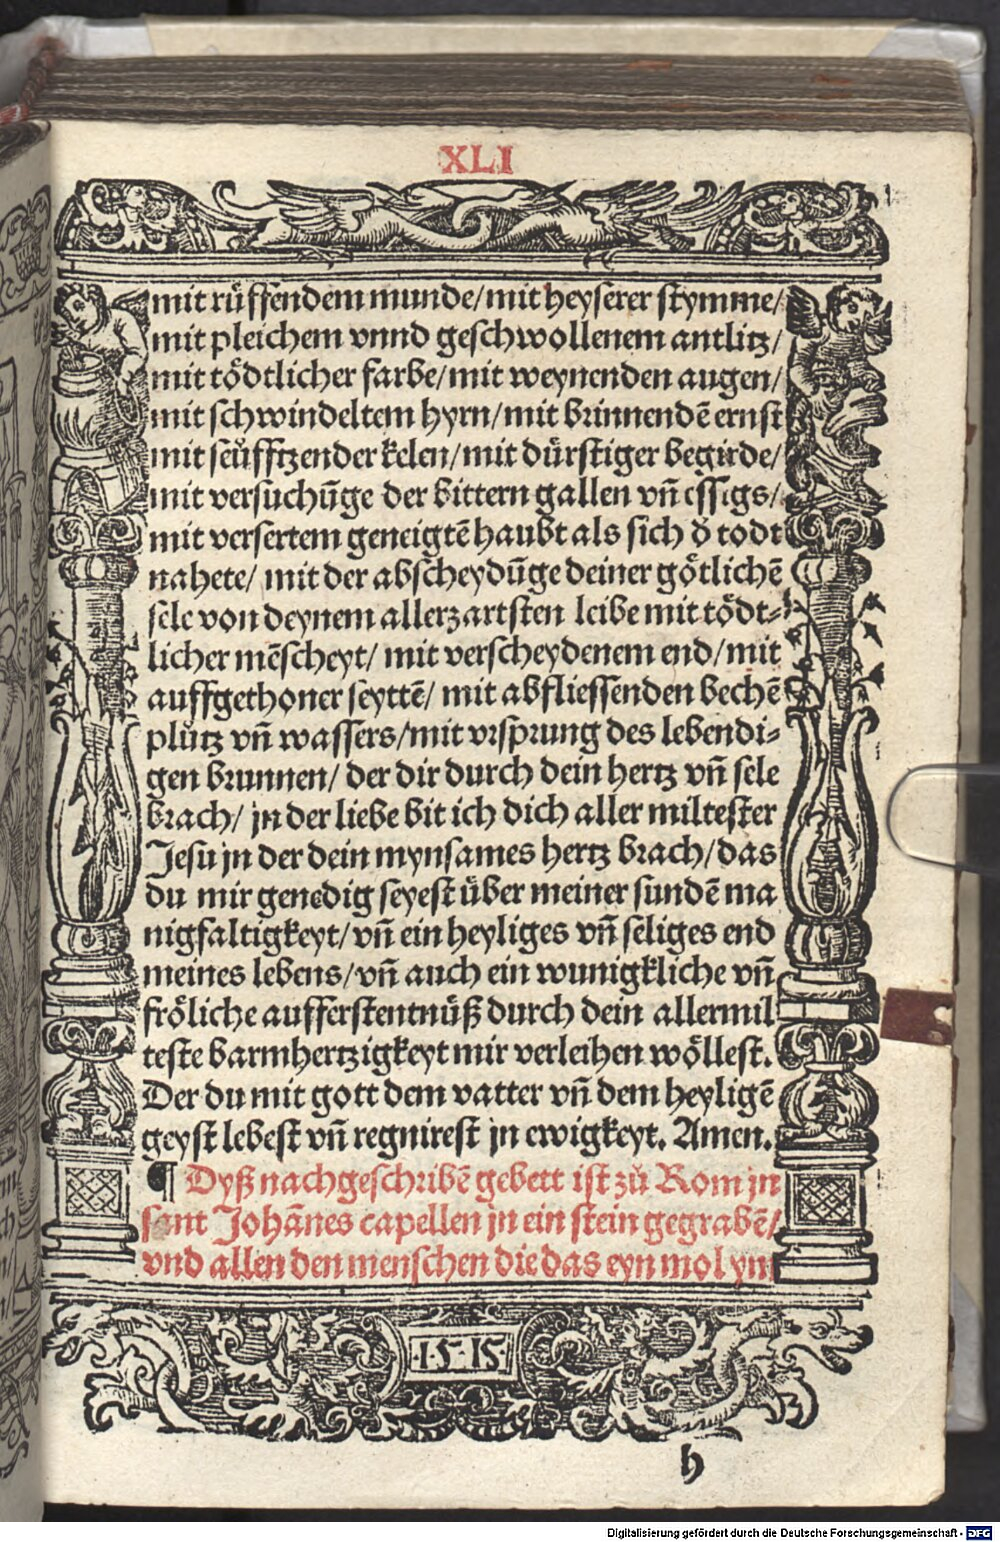 XLI
mit rüffendem munde/ mit heyserer stymme/
mit pleichem vnnd geschwollenem antlitz/
mit tödtlicher farbe/ mit weynenden augen/
mit schwindeltem hyrn/ mit brinnendē ernst
mit seüfftzender kelen/ mit dürstiger begirde/
mit versuchūge der bittern gallen vn̄ essigs/
mit versertem geneigtē haubt als sich d̄ todt
nahete/ mit der abscheydūge deiner götlichē
sele von deynem allerzartsten leibe mit tödt⸗
licher mēscheyt/ mit verscheydenem end/ mit
auffgethoner seyttē/ mit abfliessenden bechē
plůtz vn̄ wassers/ mit vrsprung des lebendi⸗
gen brunnen/ der dir durch dein hertz vn̄ sele
brach/ jn der liebe bit ich dich aller miltester
Jesu jn der dein mynsames hertz brach/ das
du mir genedig seyest über meiner sundē ma
nigfaltigkeyt/ vn̄ ein heyliges vn̄ seliges end
meines lebens/ vn̄ auch ein wunigkliche vn̄
fröliche aufferstentnüß durch dein allermil
teste barmhertzigkeyt mir verleihen wöllest.
Der du mit gott dem vatter vn̄ dem heyligē
geyst lebest vn̄ regnirest jn ewigkeyt. Amen.
¶ Dyß nachgeschribē gebett ist zů Rom jn
sant Johānes capellen jn ein stein gegrabē/
vnd allen den menschen die das eyn mol ym
·1515·
h
Digitalisierung gefördert durch die Deutsche Forschungsgemeinschaft - DFG